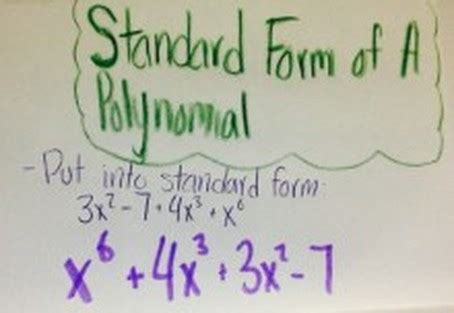 Standard Form of A
Polynomial
- Put into standard form:
3x² - 7 + 4x³ + x⁶
x⁶ + 4x³ + 3x² - 7